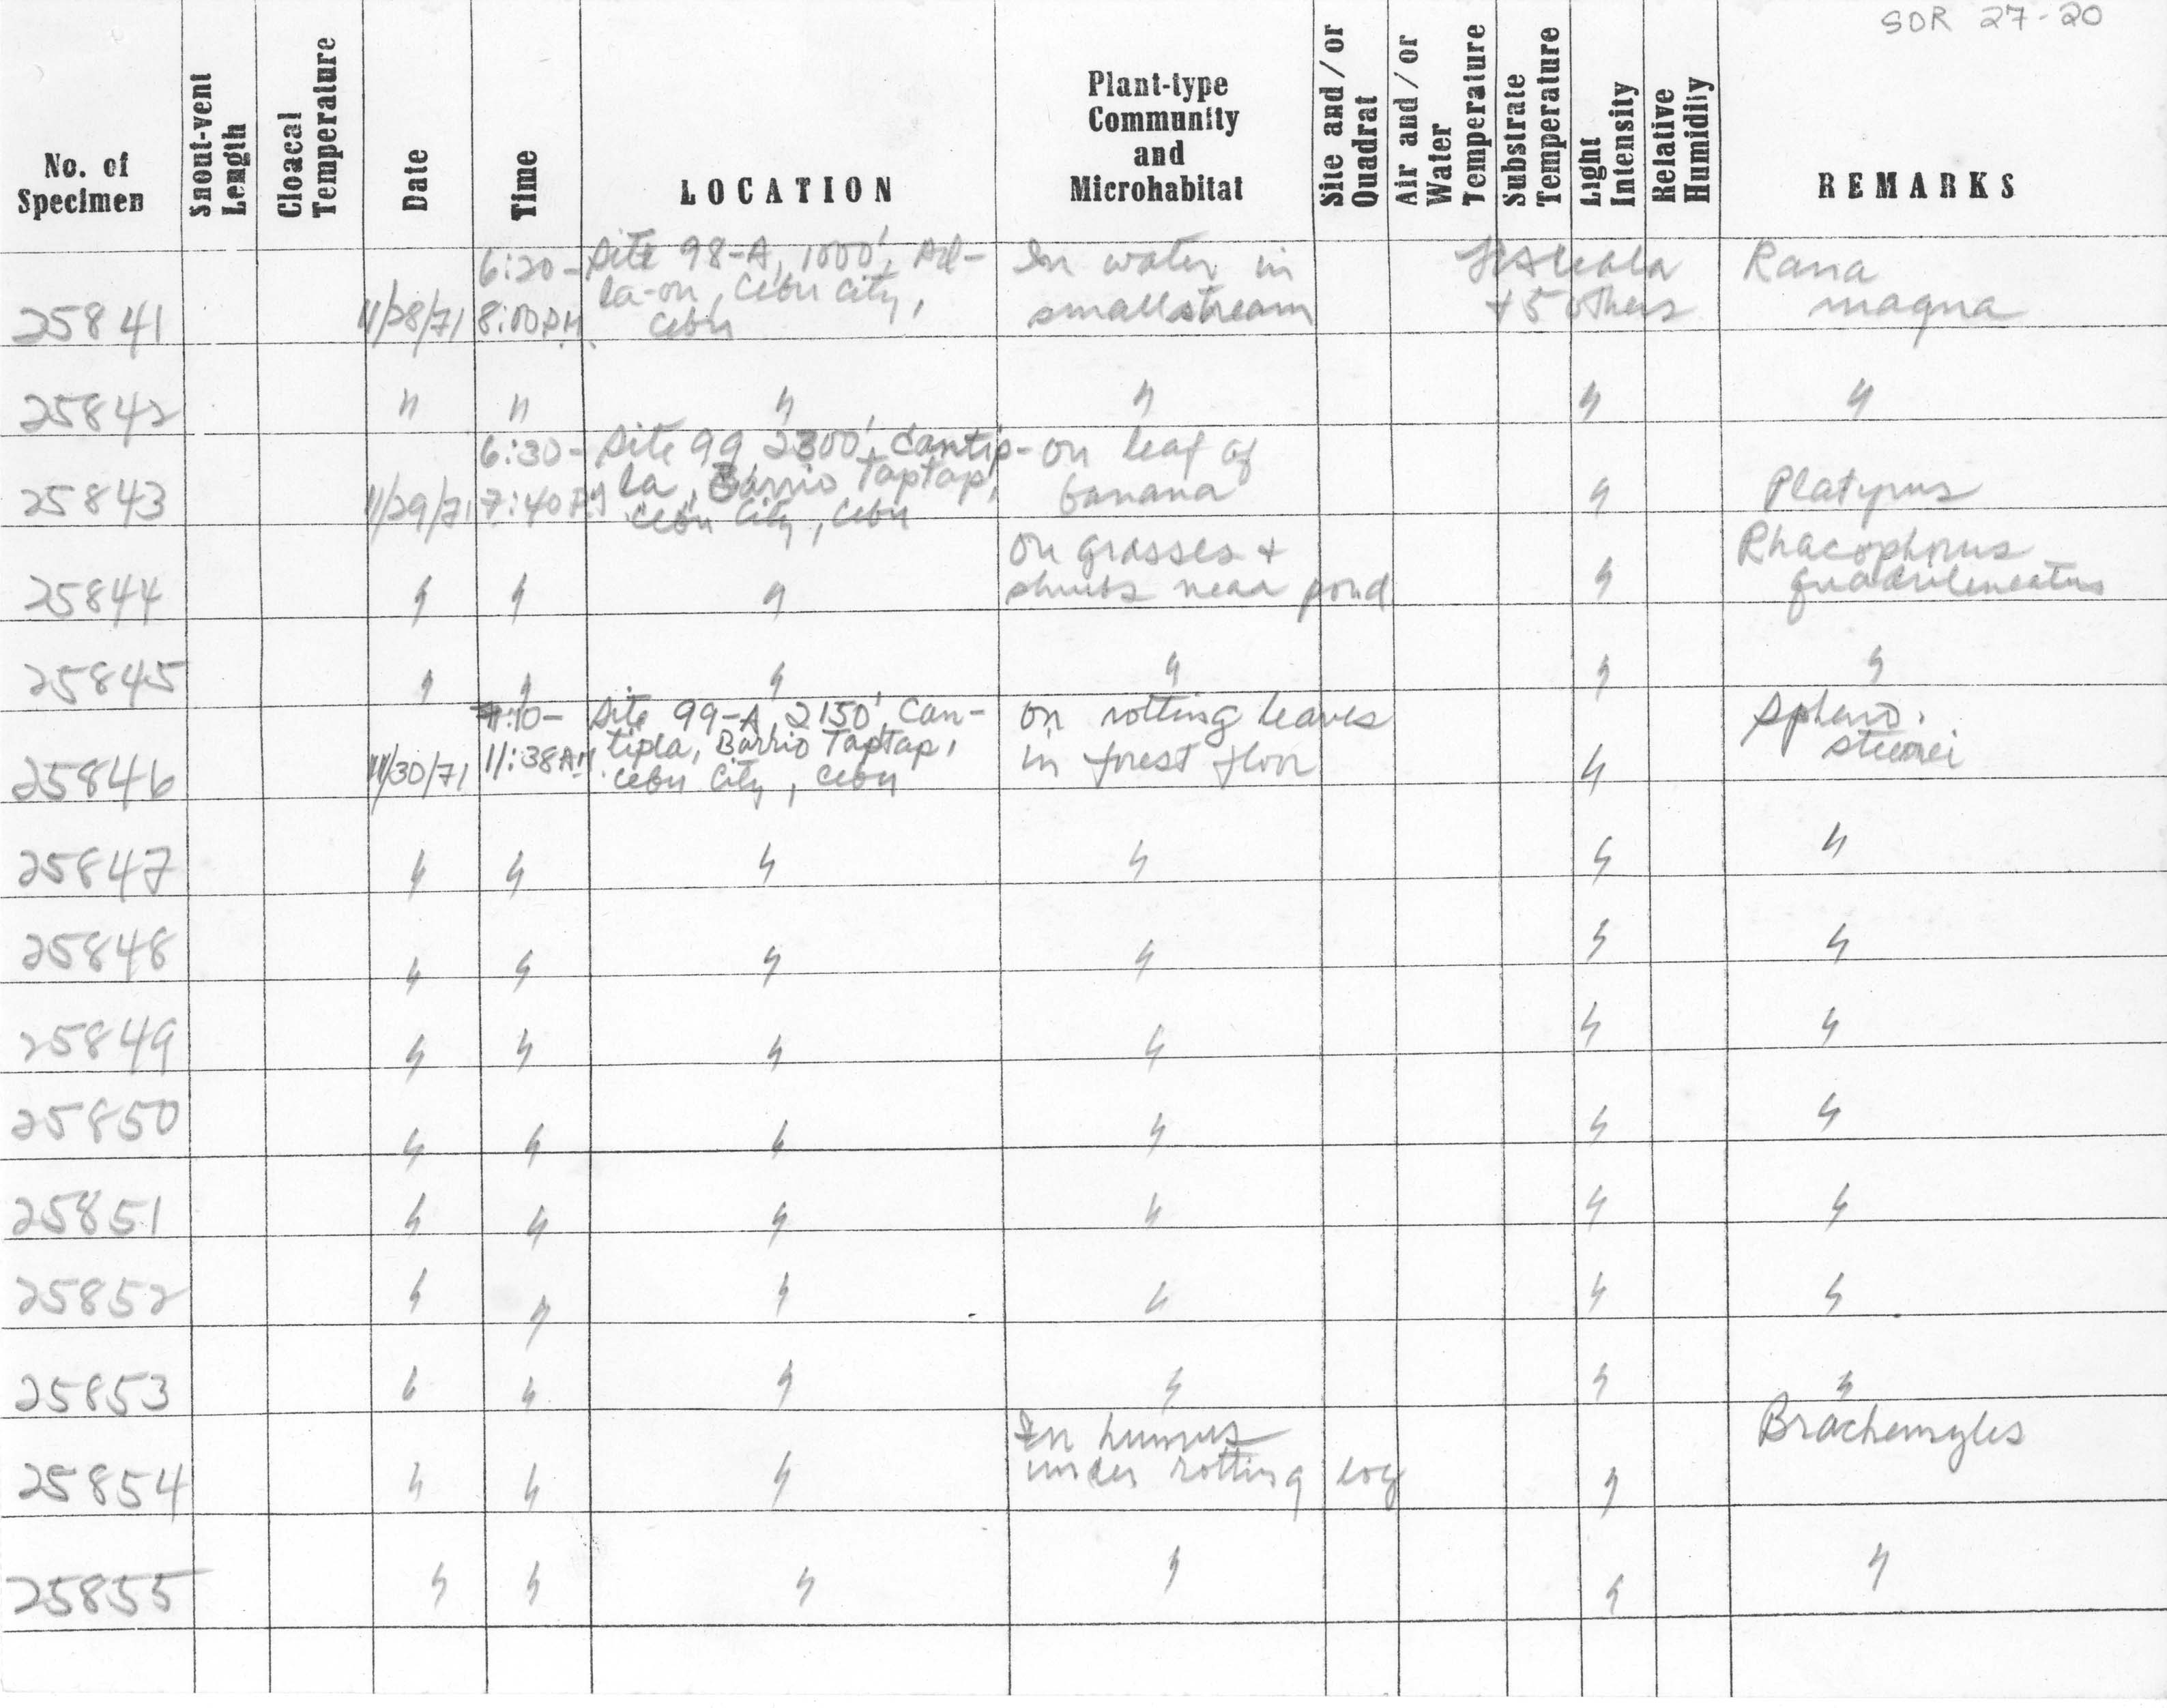 SDR 27-20
No. of Specimen
Snout-vent Length
Cloacal Temperature
Date
Time
LOCATION
Plant-type Community and Microhabitat
Site and/or Quadrat
Air and/or Water Temperature
Substrate Temperature
Light Intensity
Relative Humidity
REMARKS
25841 11/28/71 6:20-8:00PM. Site 98-A, 1000', la-on, Cebu City, Cebu In water in small stream +5 others Rana magna
25842 " " " " " "
25843 11/29/71 6:30-7:40PM Site 99 2300', Cantip-la, Barrio Taptap, Cebu City, Cebu on leaf of banana " Platypus
25844 " " " on grasses + shrubs near pond " Rhacophorus
25845 " " " " " "
25846 11/30/71 11:38AM Site 99-A, 2150', Can-tipla, Barrio Taptap, Cebu City, Cebu on rotting leaves in forest floor " Spheno.
25847 " " " " " "
25848 " " " " " "
25849 " " " " " "
25850 " " " " " "
25851 " " " " " "
25852 " " " " " "
25853 " " " " " "
25854 " " " In humus under rotting log "
25855 " " " " " "